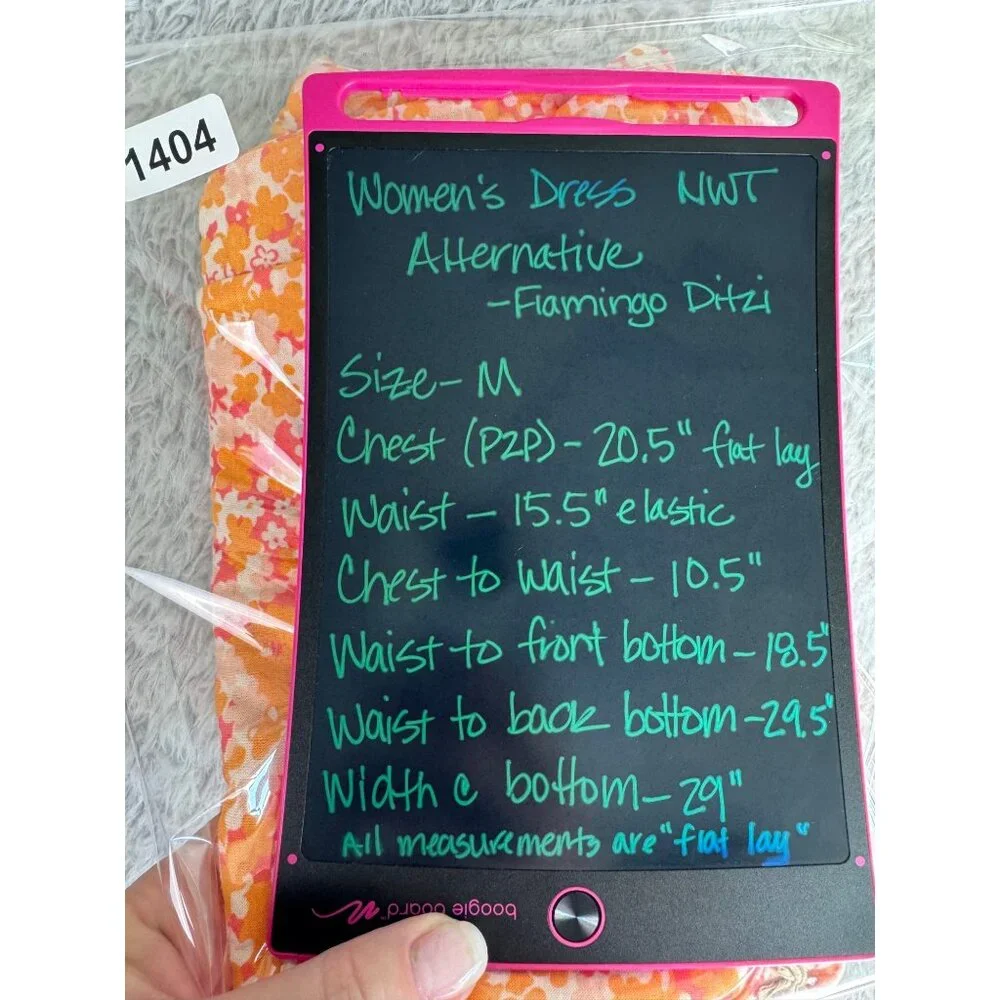 1404
Women's Dress NWT
Alternative
-Flamingo Ditzi
Size- M
Chest (P2P)- 20.5" flat lay
Waist - 15.5" elastic
Chest to Waist - 10.5"
Waist to front bottom - 18.5"
Waist to back bottom -29.5"
Width @ bottom - 29"
All measurements are "flat lay"
boogie board